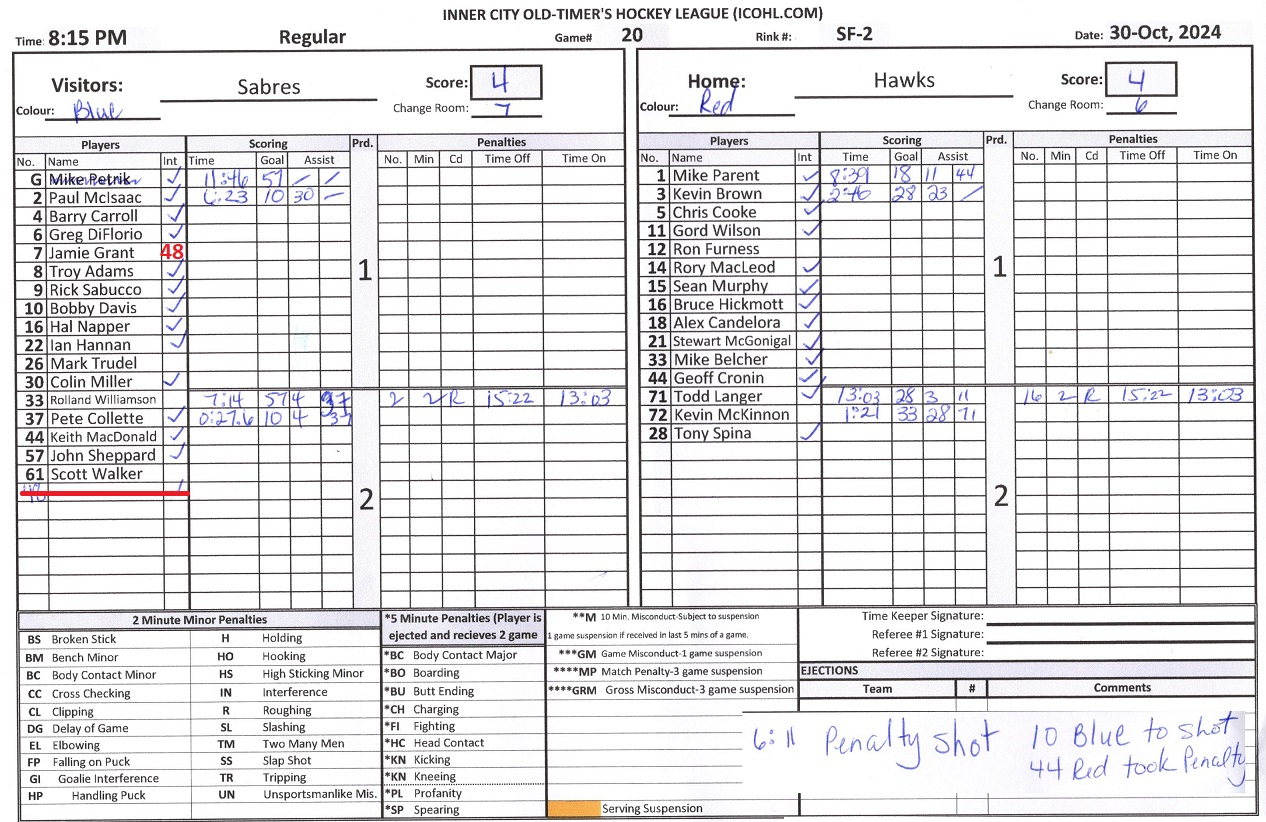 INNER CITY OLD-TIMER'S HOCKEY LEAGUE (ICOHL.COM)
Time: 8:15 PM Regular Game# 20 Rink #: SF-2 Date: 30-Oct, 2024
Visitors: Sabres Score: 4
Colour: Blue Change Room: 7
Players Scoring Prd. Penalties
No. Name Int Time Goal Assist No. Min Cd Time Off Time On
G Mike Petrik ✓ 11:46 57 — —
2 Paul McIsaac ✓ 6:23 10 30 —
4 Barry Carroll ✓
6 Greg DiFlorio ✓
7 Jamie Grant 48
8 Troy Adams ✓ 1
9 Rick Sabucco ✓
10 Bobby Davis ✓
16 Hal Napper ✓
22 Ian Hannan ✓
26 Mark Trudel
30 Colin Miller ✓
33 Rolland Williamson 7:14 57 4 2 2 R 15:22 13:03
37 Pete Collette ✓ 0:27.6 10 4 37
44 Keith MacDonald ✓
57 John Sheppard ✓
61 Scott Walker
2
Home: Hawks Score: 4
Colour: Red Change Room: 6
Players Scoring Prd. Penalties
No. Name Int Time Goal Assist No. Min Cd Time Off Time On
1 Mike Parent ✓ 8:39 18 11 44
3 Kevin Brown ✓ 2:46 28 23 —
5 Chris Cooke ✓
11 Gord Wilson ✓
12 Ron Furness
14 Rory MacLeod ✓ 1
15 Sean Murphy ✓
16 Bruce Hickmott ✓
18 Alex Candelora ✓
21 Stewart McGonigal ✓
33 Mike Belcher ✓
44 Geoff Cronin ✓
71 Todd Langer ✓ 13:03 28 3 11 16 2 R 15:22 13:03
72 Kevin McKinnon ✓ 1:21 33 28 71
28 Tony Spina ✓
2
2 Minute Minor Penalties
BS Broken Stick H Holding
BM Bench Minor HO Hooking
BC Body Contact Minor HS High Sticking Minor
CC Cross Checking IN Interference
CL Clipping R Roughing
DG Delay of Game SL Slashing
EL Elbowing TM Two Many Men
FP Falling on Puck SS Slap Shot
GI Goalie Interference TR Tripping
HP Handling Puck UN Unsportsmanlike Mis.
*5 Minute Penalties (Player is
ejected and recieves 2 game
*BC Body Contact Major
*BO Boarding
*BU Butt Ending
*CH Charging
*FI Fighting
*HC Head Contact
*KN Kicking
*KN Kneeing
*PL Profanity
*SP Spearing
**M 10 Min. Misconduct-Subject to suspension
1 game suspension if received in last 5 mins of a game.
***GM Game Misconduct-1 game suspension
****MP Match Penalty-3 game suspension
****GRM Gross Misconduct-3 game suspension
Serving Suspension
Time Keeper Signature:
Referee #1 Signature:
Referee #2 Signature:
EJECTIONS
Team # Comments
6:11 Penalty shot 10 Blue to shot
44 Red took Penalty